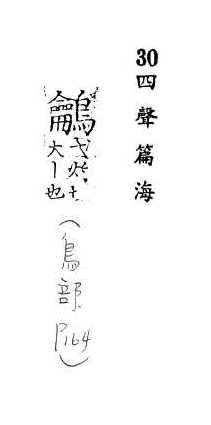 30四聲篇海
鸙弋灼切
大丨也
(鳥部P164)